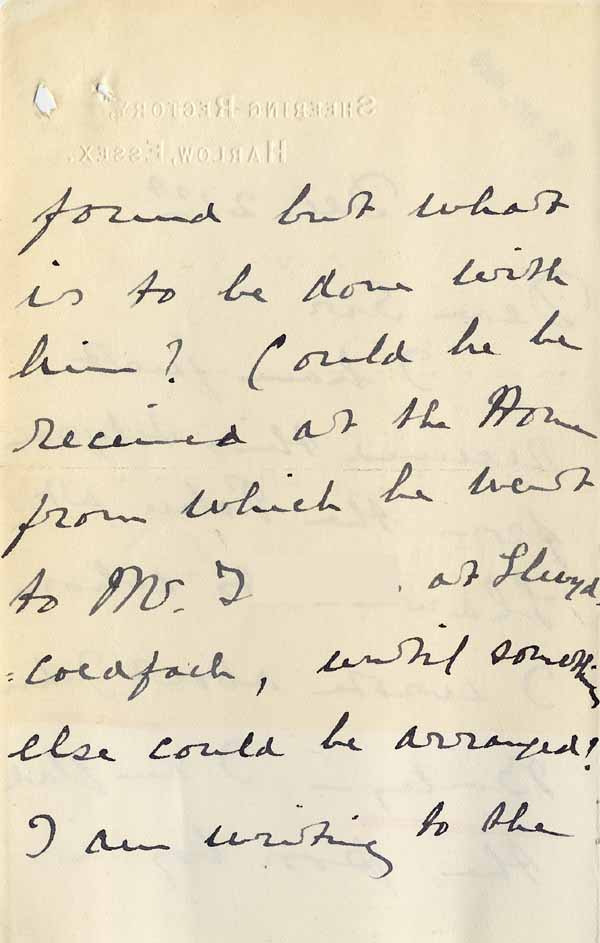 SHEERING RECTORY,
HARLOW, ESSEX.
found but what
is to be done with
him? Could he be
received at the Home
from which he went
to Mr. T at Llwyd,
=coedfach, until something
else could be arranged?
I am writing to the